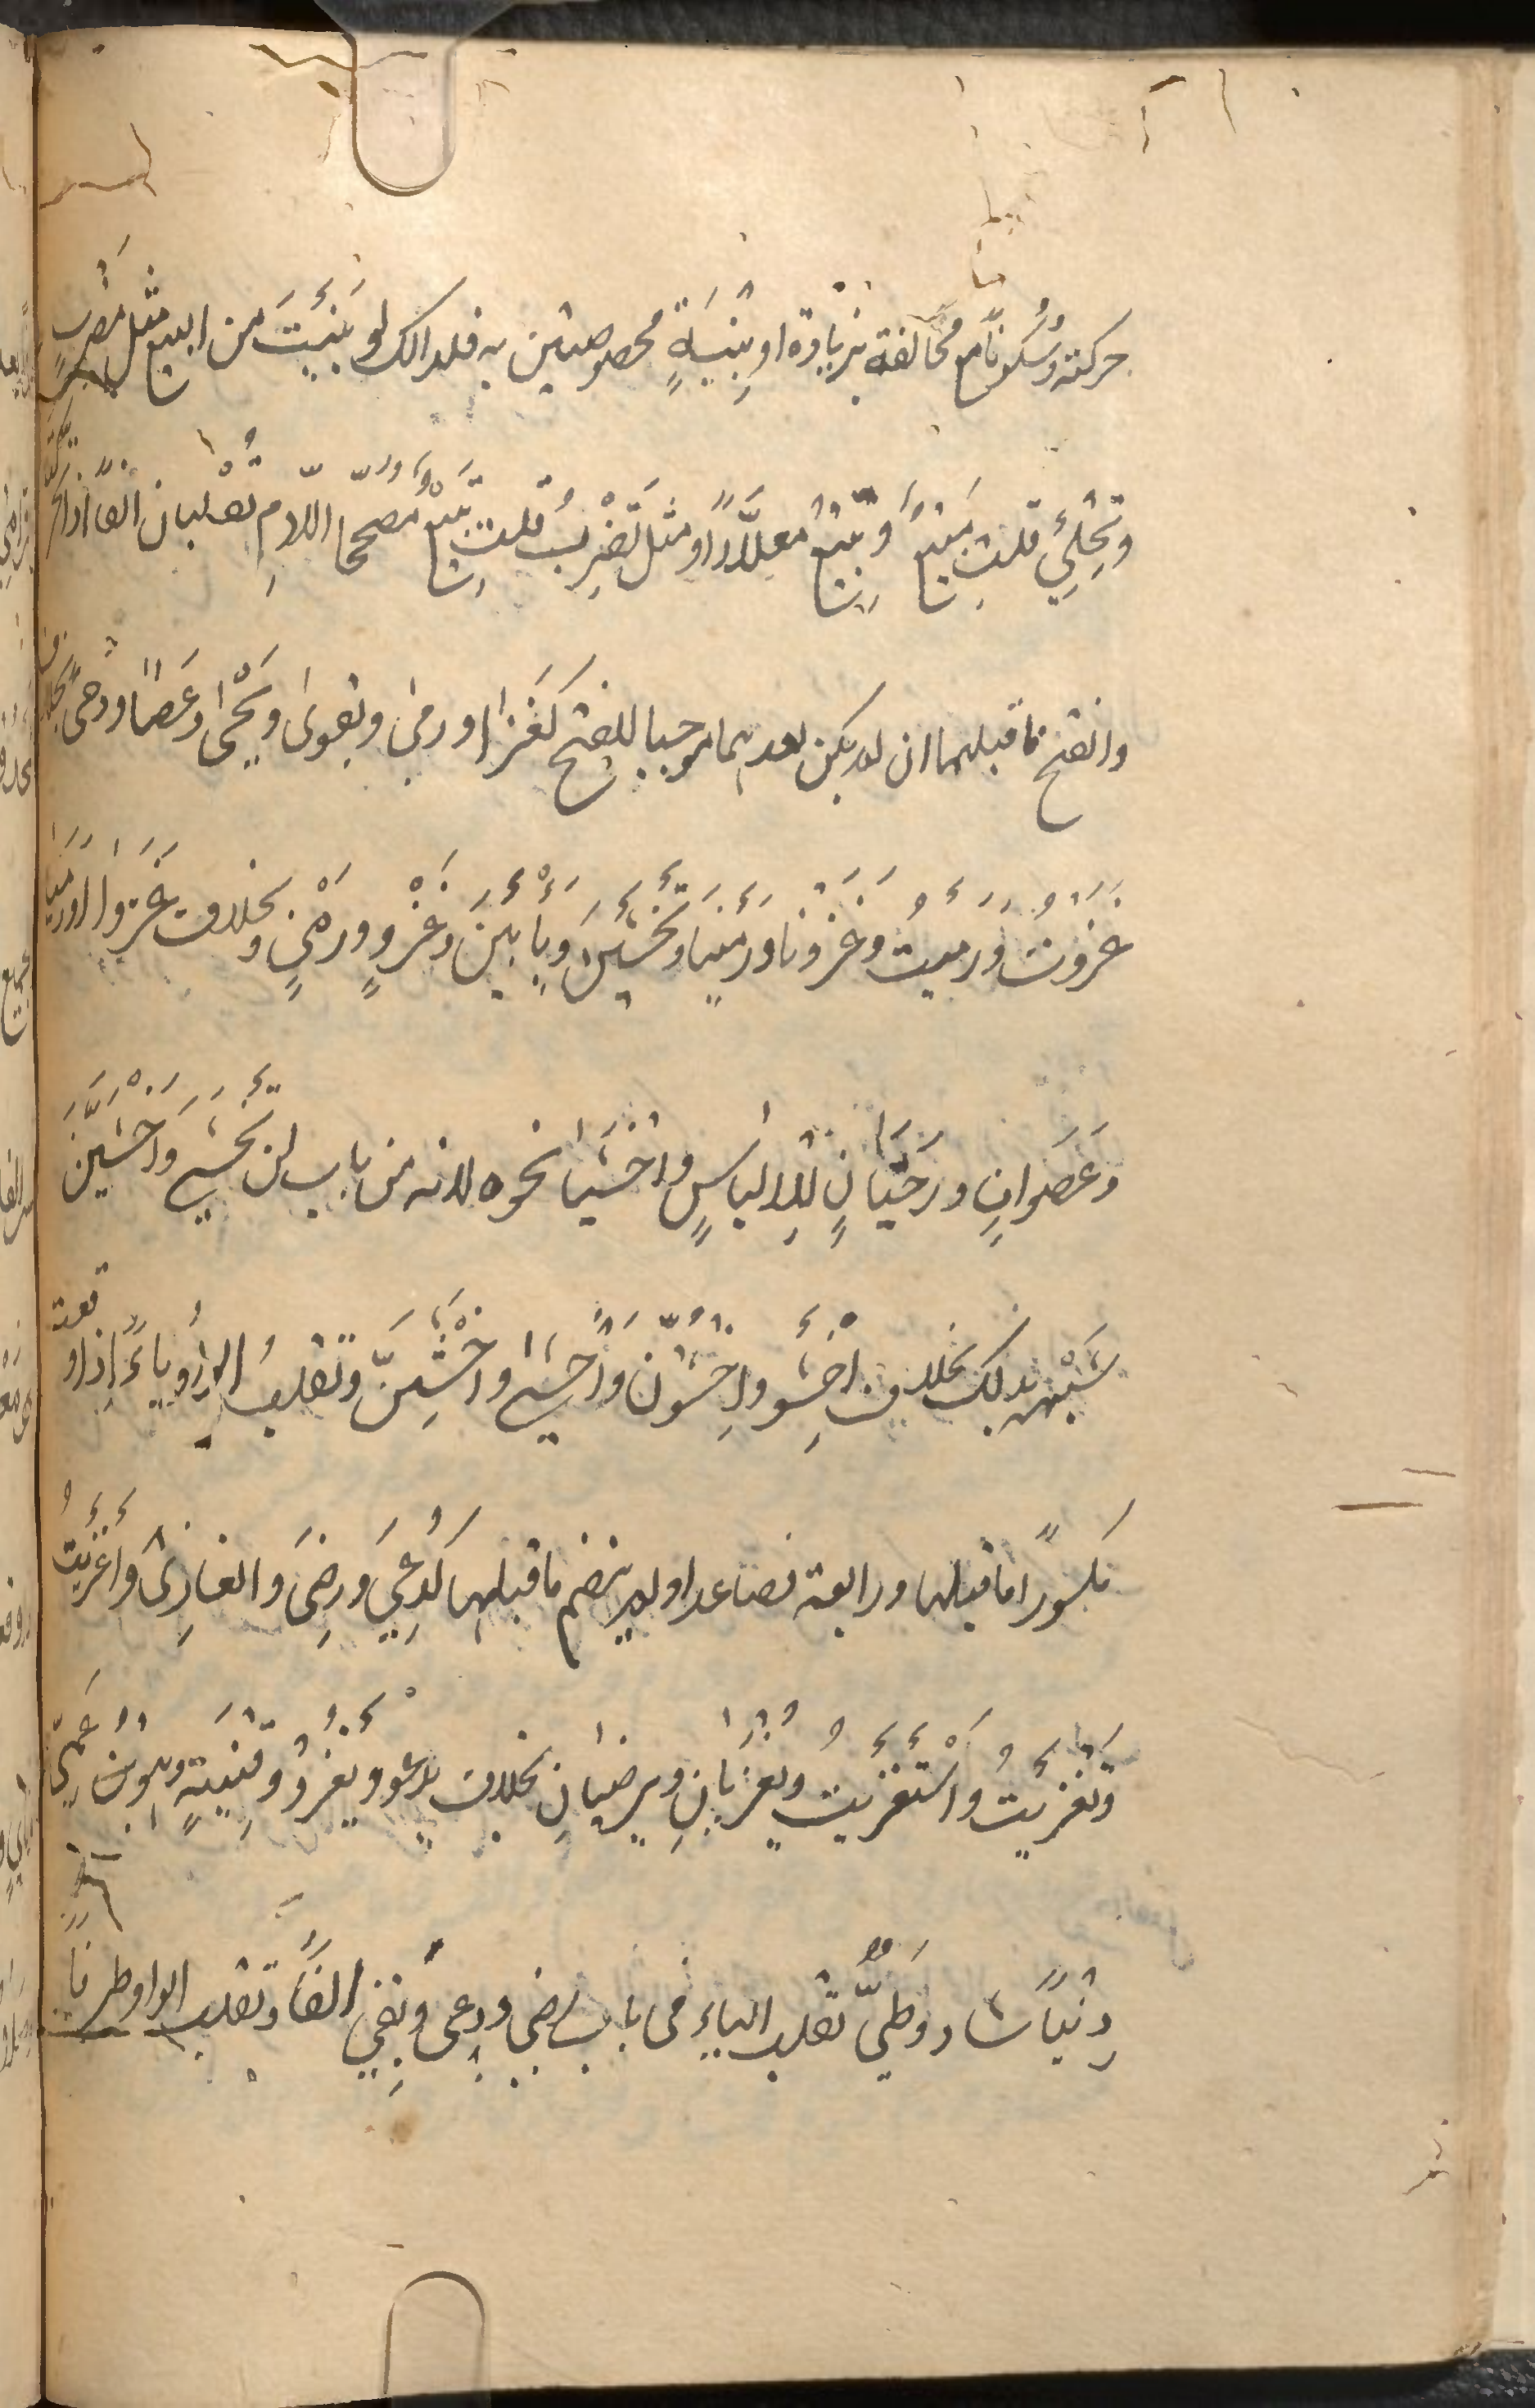 حركتة وسُكونًا مع مخالفة بزيادة او بِنْيَةٍ مخصوصتين به فلذالك لو بَنَيْتَ من البيع مثل مَضْرِبٍ
وتِحْلِئٍ قلت مَبِيعٌ وتِبِيعٌ معلَّلًا او مثل تَضْرِبُ قلت تَبْيِعُ مُصَحَّحا اللّامِ تُقْلبان الفًا اذا تحرّكتا
وانفتح ما قبلهما ان لم يكن بعدهما موجبا للفتح كَغَزَا ورمىٰ ويقوىٰ ويَحْيىٰ وعَصًا ورحًى بخلاف
غزوت ورميت وغزونا ورمينا وتخْشَيْنَ ويأبَيْنَ وغَزْوٍ ورَمْيٍ وبخلاف غَزَوَا ورَمَيَا
وعَصَوانِ ورَحَيَانِ للالباسِ واخْشَيَا نحوه لانه من باب لن يخْشَيَ واخْشَيَنَّ
شَبْهِهِ بذلك بخلاف اخْشَو واخْشَوُنَّ واخْشَيْ واخْشَيِنَّ وتقلبُ الواوُ ياءً اذا وقعت
مكسورًا ما قبلها ورابعة فصاعدا ولم ينضم ما قبلها كدُعِيَ ورضِيَ والغازِي واَغْزَيتُ
وتغزّيتُ واَسْتَغْزَيت ويُغْزَيانِ ويرضيانِ بخلاف يدعو ويغزو وقِنْيَةٌ وهو ابن عَمِّي
دِنْيًا شاذ وطيّ تقلب الياء فى باب رضِى ودعى وبقِىَ الفًا وتقلب الواو طرفا